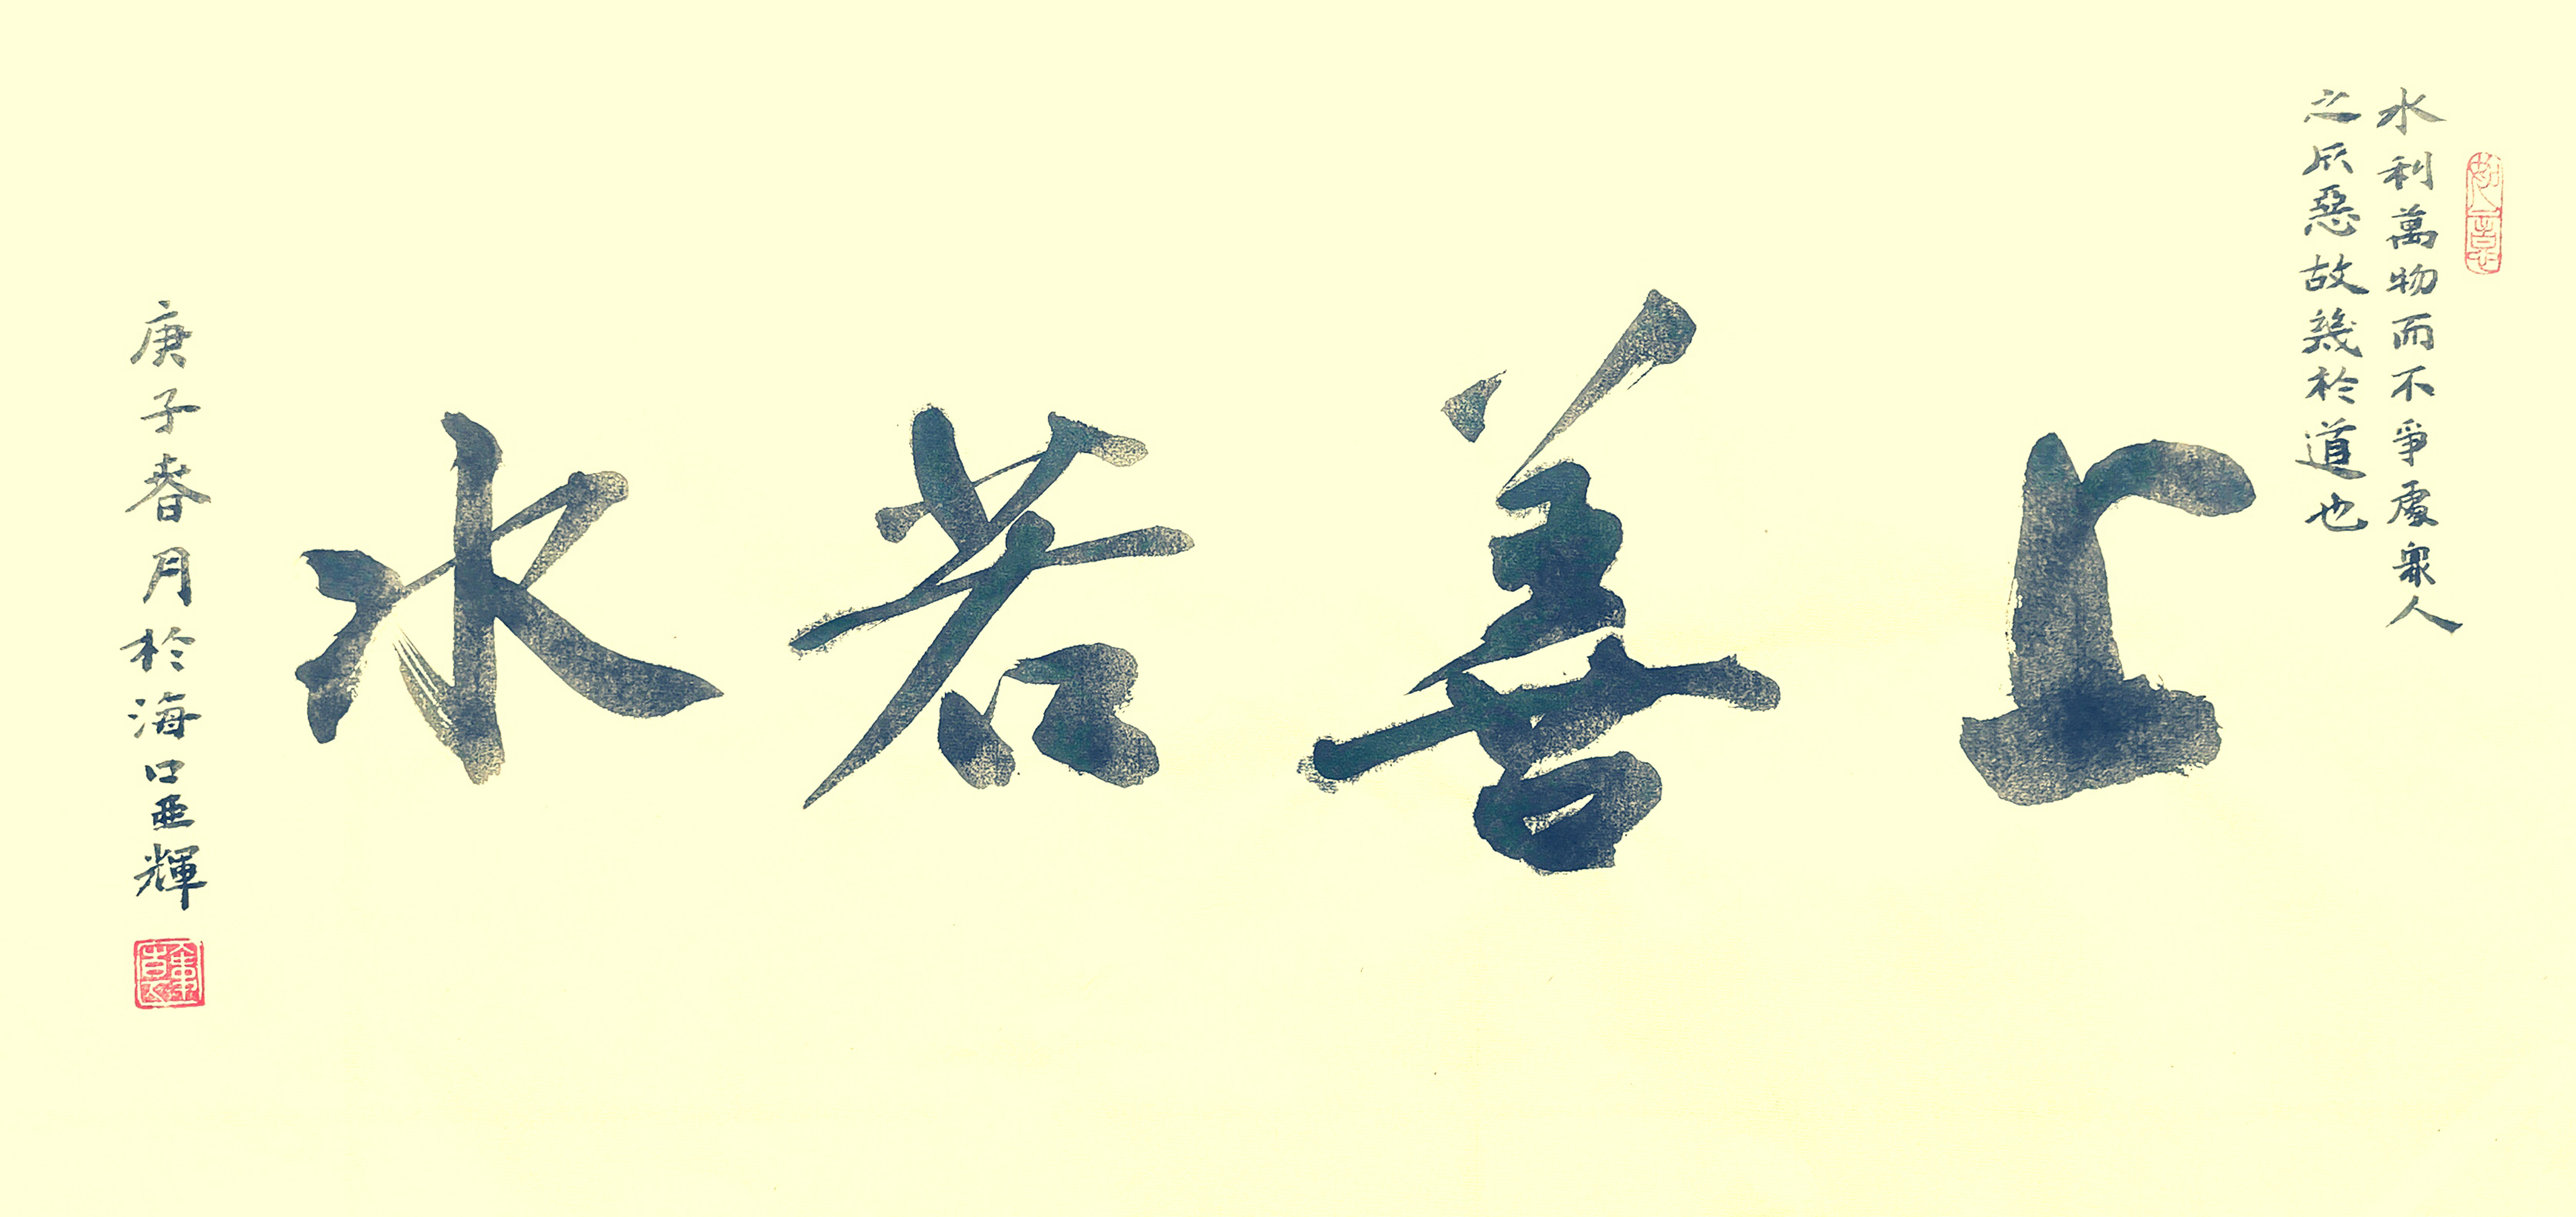 水利萬物而不爭處衆人
之所惡故幾於道也
上善若水
庚子春月於海口亞輝